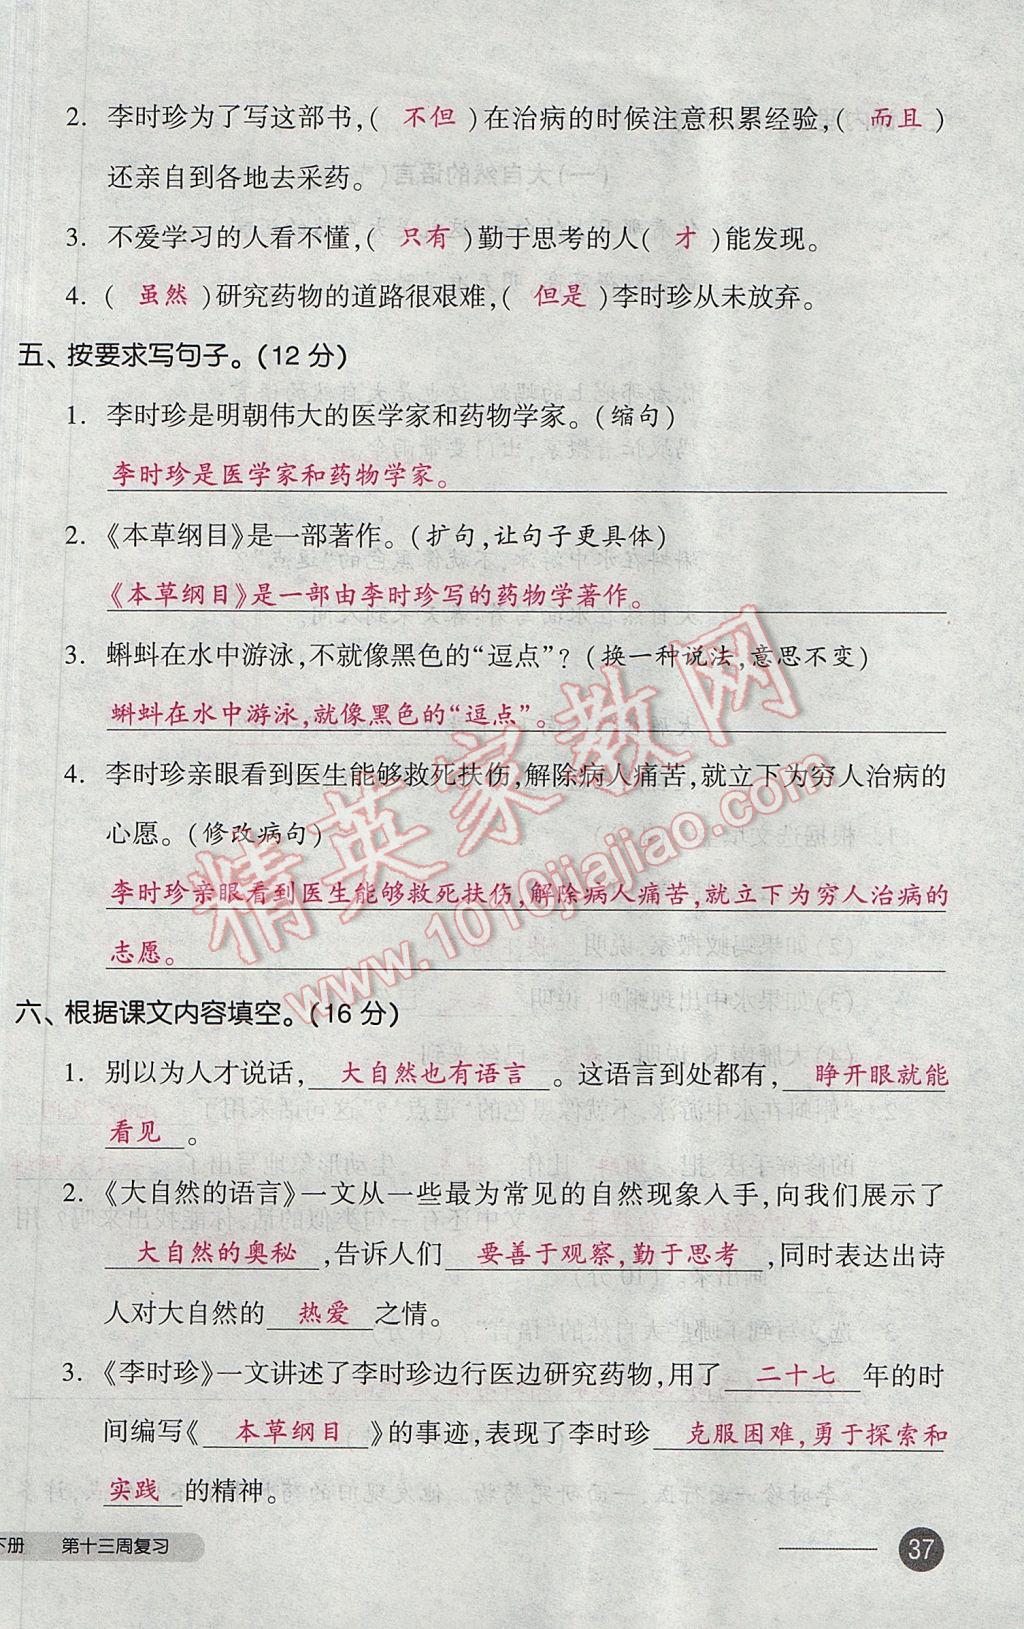 2. 李时珍为了写这部书,( 不但 )在治病的时候注意积累经验,( 而且 )
还亲自到各地去采药。
3. 不爱学习的人看不懂,( 只有 )勤于思考的人( 才 )能发现。
4. ( 虽然 )研究药物的道路很艰难,( 但是 )李时珍从未放弃。
五、按要求写句子。(12 分)
1. 李时珍是明朝伟大的医学家和药物学家。(缩句)
李时珍是医学家和药物学家。
2. 《本草纲目》是一部著作。(扩句,让句子更具体)
《本草纲目》是一部由李时珍写的药物学著作。
3. 蝌蚪在水中游泳,不就像黑色的“逗点”?(换一种说法,意思不变)
蝌蚪在水中游泳,就像黑色的“逗点”。
4. 李时珍亲眼看到医生能够救死扶伤,解除病人痛苦,就立下为穷人治病的
心愿。(修改病句)
李时珍亲眼看到医生能够救死扶伤,解除病人痛苦,就立下为穷人治病的
志愿。
六、根据课文内容填空。(16 分)
1. 别以为人才说话, 大自然也有语言 。这语言到处都有, 睁开眼就能
看见 。
2. 《大自然的语言》一文从一些最为常见的自然现象入手,向我们展示了
大自然的奥秘 ,告诉人们 要善于观察,勤于思考 ,同时表达出诗
人对大自然的 热爱 之情。
3. 《李时珍》一文讲述了李时珍边行医边研究药物,用了 二十七 年的时
间编写《 本草纲目 》的事迹,表现了李时珍 克服困难,勇于探索和
实践 的精神。
下册 第十三周复习
37
精英家教网
www.1010jiajiao.com